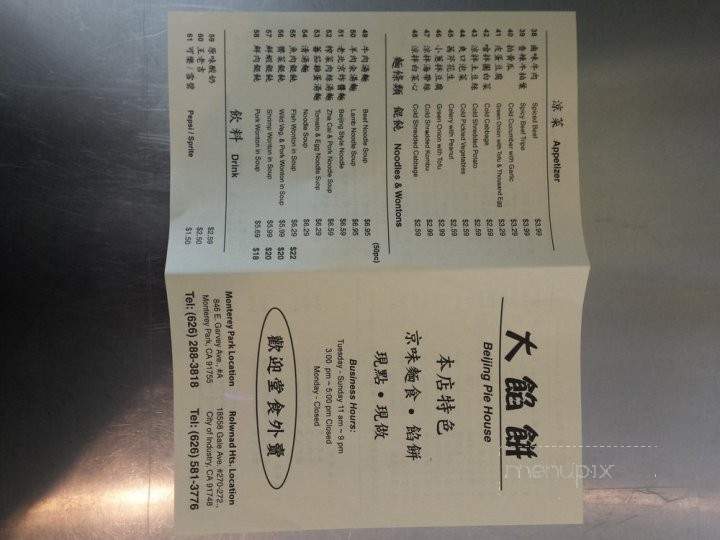 涼菜 Appetizer
38 滷味牛肉 Spiced Beef $3.99
39 香辣牛柚餐 Spicy Beef Tripe $3.99
40 拍黃瓜 Cold Cucumber with Garlic $3.29
41 皮蛋豆腐 Green Onion with Tofu & Thousand Egg $3.29
42 嗆拌圓白菜 Cold Cabbage $2.59
43 涼拌土豆絲 Cold Shredded Potato $2.59
44 爽口泡菜 Cold Pickled Vegetables $2.59
45 萵芹花生 Celery with Peanut $2.59
46 小蔥拌豆腐 Green Onion with Tofu $2.99
47 涼拌海帶絲 Cold Shredded Kombu $2.99
48 涼拌白菜心 Cold Shredded Cabbage $2.59
麵條類 餛飩 Noodles & Wontons
(50pc)
49 牛肉湯麵 Beef Noodle Soup $6.95
50 羊肉汆湯麵 Lamb Noodle Soup $6.95
51 老北京炸醬麵 Beijing Style Noodle $6.59
52 榨菜肉絲湯麵 Zha Cai & Pork Noodle Soup $6.59
53 蕃茄雞蛋湯麵 Tomato & Egg Noodle Soup $6.29
54 清湯麵 Noodle Soup $6.29
55 魚肉餛飩 Fish Wonton in Soup $6.29 $22
56 薺菜餛飩 Wild Veg. & Pork Wonton in Soup $5.99 $20
57 鮮蝦餛飩 Shrimp Wonton in Soup $5.99 $20
58 鮮肉餛飩 Pork Wonton in Soup $5.69 $18
飲料 Drink
59 原味酸奶 $2.59
60 王老吉 $2.50
61 可樂 / 雪碧 Pepsi / Sprite $1.50
大餡餅
Beijing Pie House
本店特色
京味麵食 • 餡餅
現點 • 現做
Business Hours:
Tuesday - Sunday 11 am ~ 9 pm
3:00 pm ~ 5:00 pm Closed
Monday - Closed
歡迎堂食外賣
Monterey Park Location
846 E. Garvey Ave., #A
Monterey Park, CA 91755
Tel: (626) 288-3818
Rolwnad Hts. Location
18558 Gale Ave. #270-272.,
City of Industry, CA 91748
Tel: (626) 581-3776
menupix